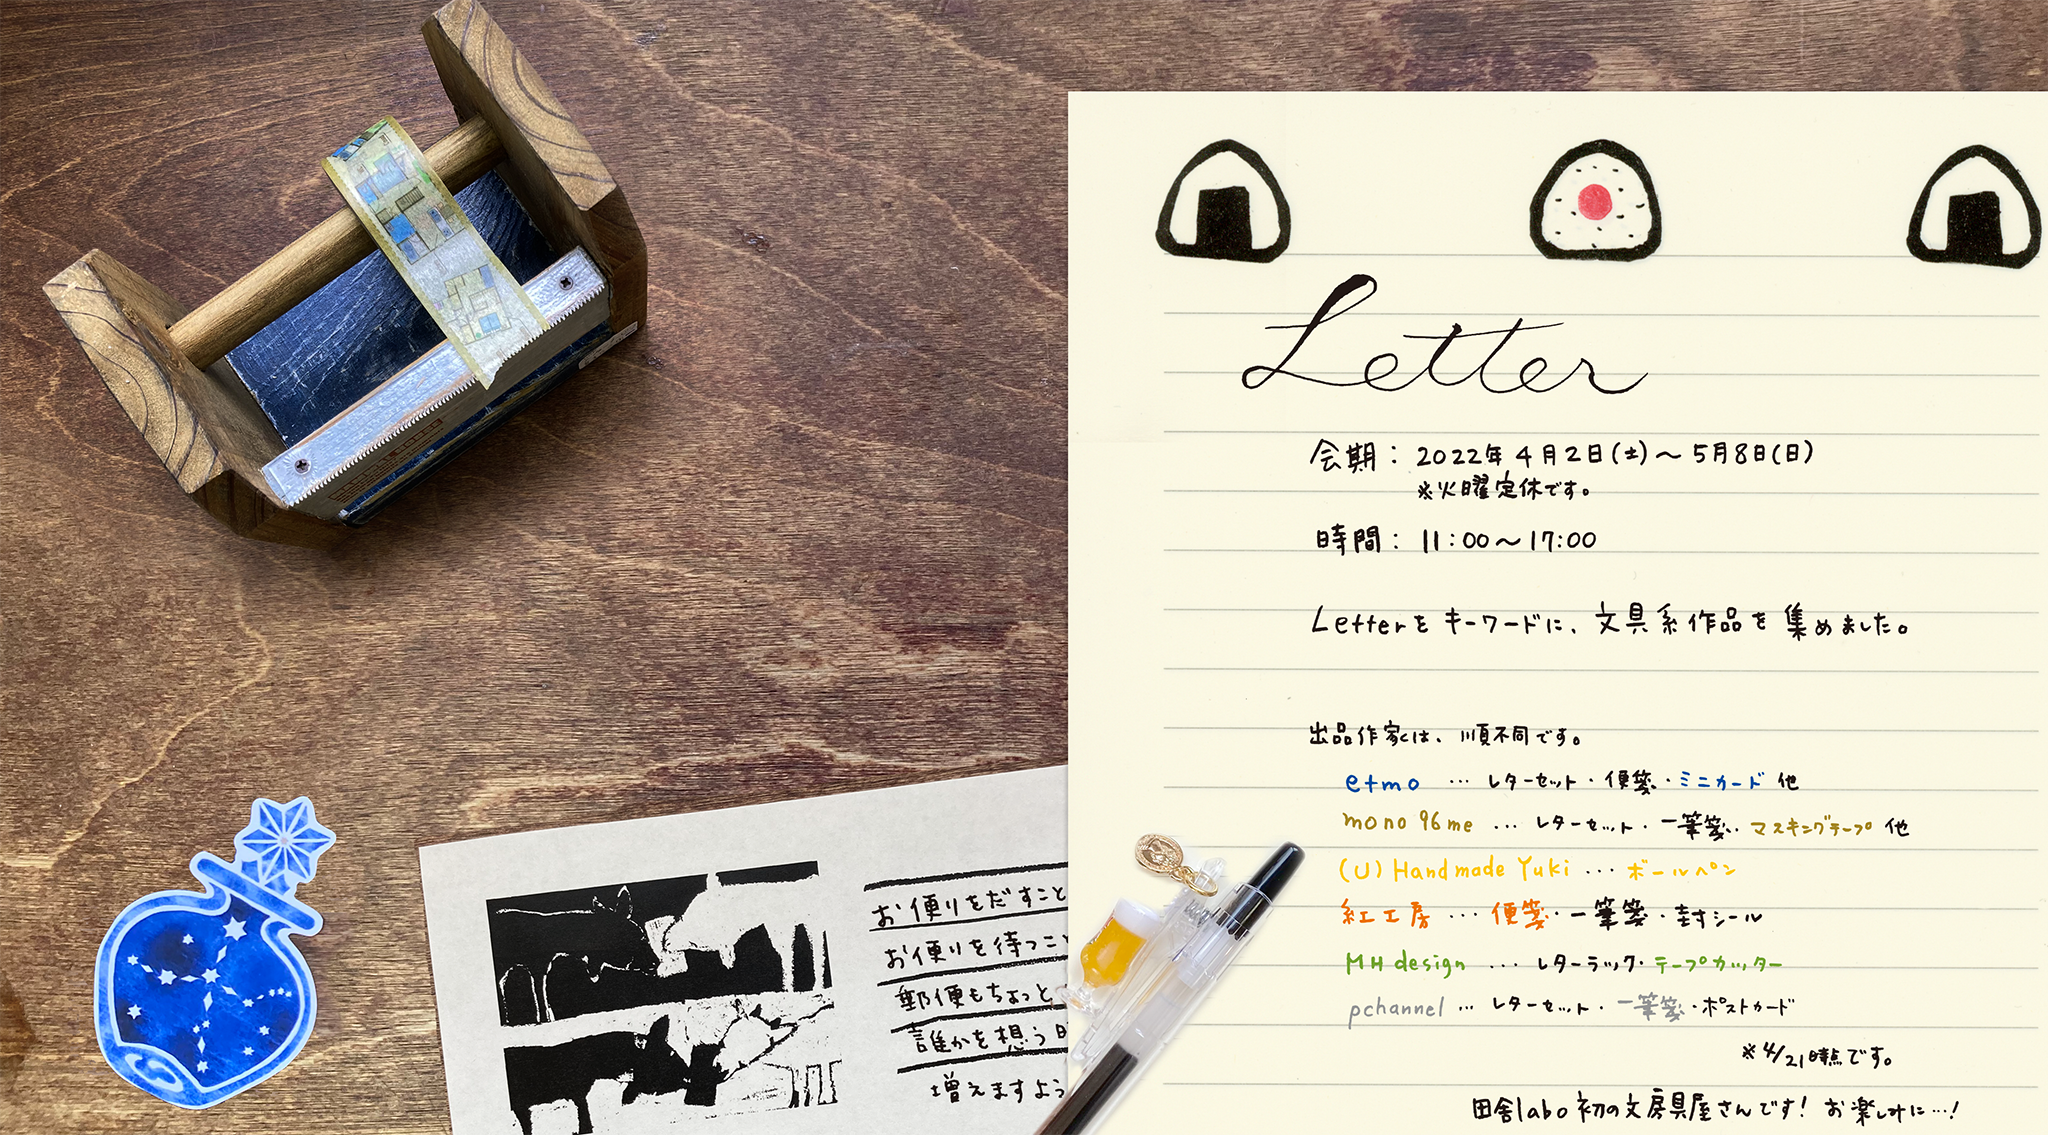 Letter
会期： 2022年4月2日(土)〜5月8日(日)
※火曜定休です。
時間： 11：00〜17：00
Letterをキーワードに、文具系作品を集めました。
出品作家は、順不同です。
etmo … レターセット・便箋・ミニカード 他
mono96me … レターセット・一筆箋・マスキングテープ 他
(U) Handmade Yuki … ボールペン
紅工房 … 便箋・一筆箋・封シール
MH design … レターラック・テープカッター
pchannel … レターセット・一筆箋・ポストカード
※4/21時点です。
田舎labo初の文房具屋さんです！ お楽しみに…！
お便りをだすこと
お便りを待つこ
郵便もちょっと
誰かを想う
増えますよう